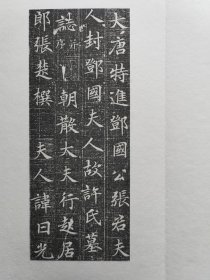 大唐特進鄧國公張君夫
人封鄧國夫人故許氏墓
誌并序朝散大夫行起居
郎張楚撰夫人諱日光